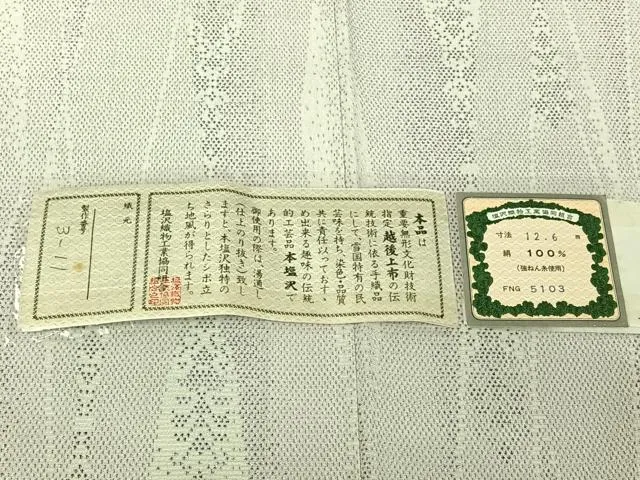 本品は
重要無形文化財技術
指定越後上布の伝
統技術に依る手織品
にして、雪国特有の民
芸季を持ち、染色・品質
共に責任以っておす
め出来る趣味の伝統
的工芸品本塩沢で
あります。
御使用の際は、湯通し
仕上(のり抜き)致し
ますと、本塩沢独特の
さらりとしたシボ立
ち地風が得られます。
塩沢織物工業協同組合
織元
製作番号
3-11
塩沢織物工業協同組合
寸法 12.6 m
絹 100%
(強ねん糸使用)
FNG 5103